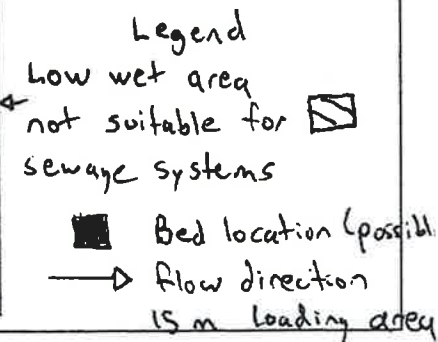 Legend
Low wet area
not suitable for
sewage systems
Bed location (possibl
flow direction
15 m Loading area